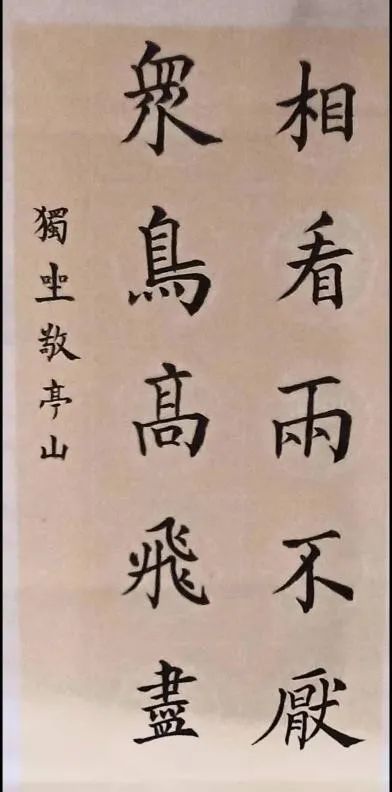 相看兩不厭
眾鳥高飛盡
獨坐敬亭山